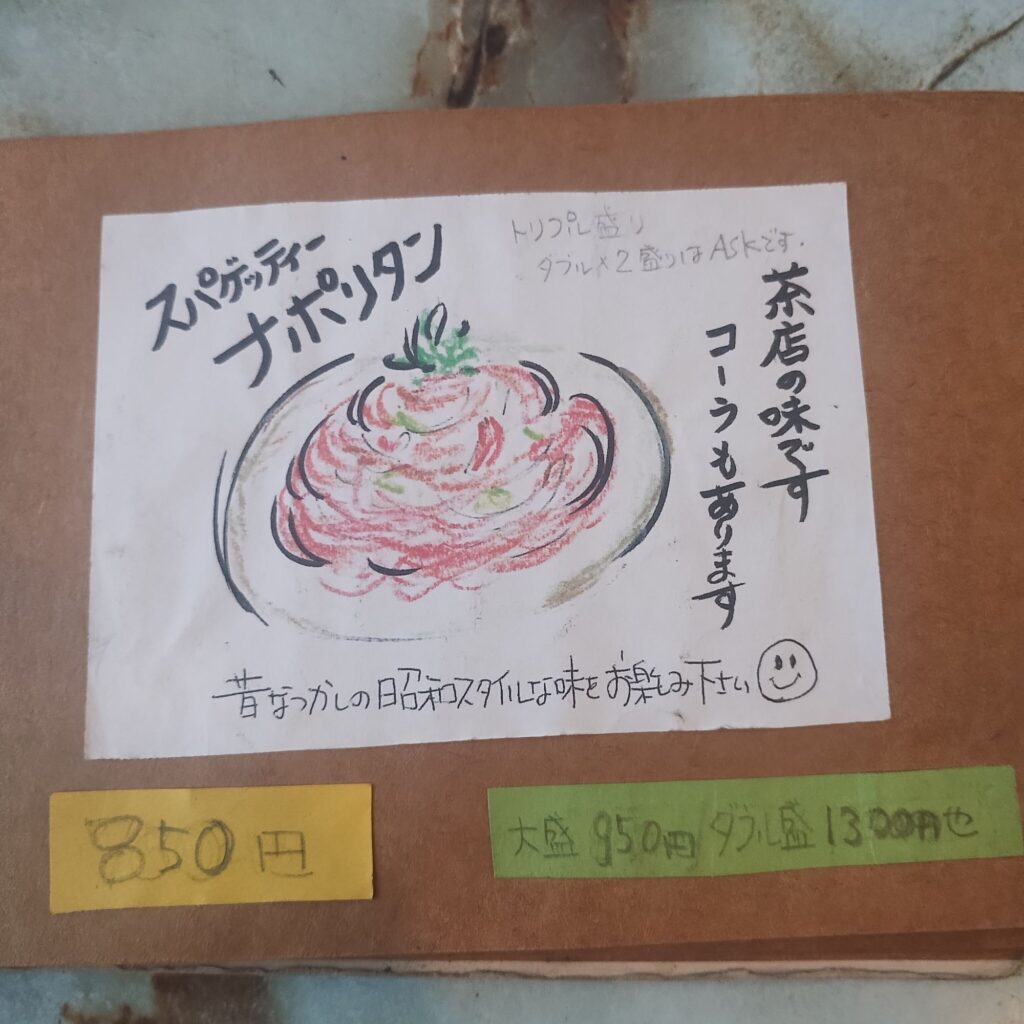 スパゲッティー
ナポリタン
トリプル盛り
ダブル×2盛りはASKです.
茶店の味です
コーラもあります
昔なつかしの昭和スタイルな味をお楽しみ下さい
850円
大盛950円/ダブル盛1300円也